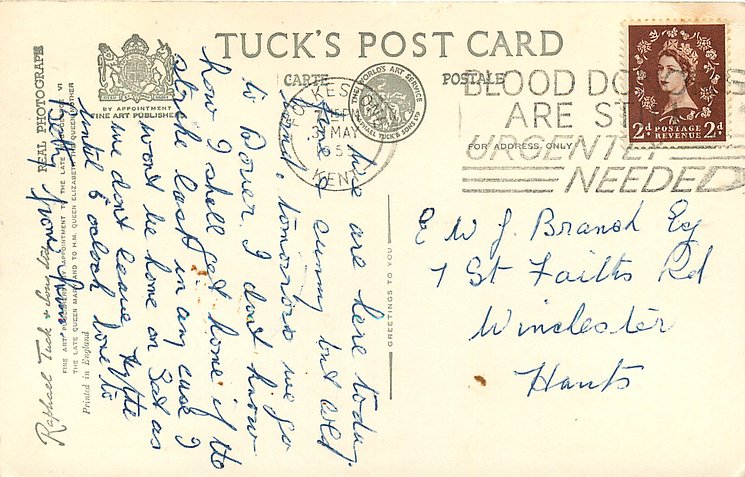 TUCK'S POST CARD
CARTE POSTALE
BY APPOINTMENT
FINE ART PUBLISHERS
THE WORLD'S ART SERVICE
RAPHAEL TUCK & SONS LTD
FOLKESTONE
31 MAY
KENT
BLOOD DO
ARE ST
URGENTLY
NEEDED
2d POSTAGE 2d
REVENUE
FOR ADDRESS ONLY
E W J. Branch Esq
7 St Faiths Rd
Winchester
Hants
We are here today,
fine & sunny but cold
wind, tomorrow we go
to Dover. I dont know
how I shall get home if the
strike last in any case I
wont be home on Sat as
we dont leave Hythe
until 6 oclock love to
Betty from Mum
GREETINGS TO YOU
REAL PHOTOGRAPH
Raphael Tuck & Sons Ltd
FINE ART PUBLISHERS BY APPOINTMENT TO THE LATE
THE LATE QUEEN MARY AND TO H.M. QUEEN ELIZABETH THE QUEEN MOTHER
Printed in England